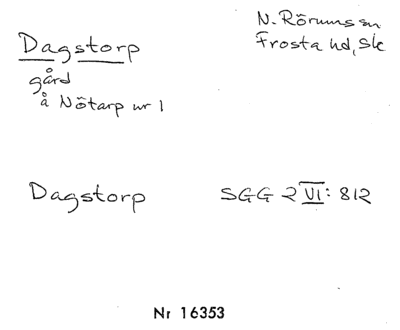 Dagstorp
gård
å Nötarp nr 1
N. Rörums sn
Frosta hd, Sk
Dagstorp SGG 2 VI: 812
Nr 16353